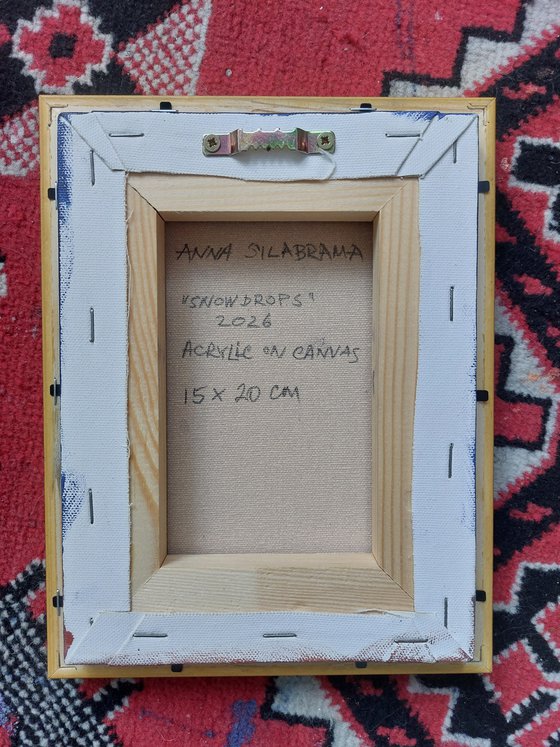 ANNA SILABRAMA
"SNOWDROPS"
2026
ACRYLIC ON CANVAS
15 X 20 CM